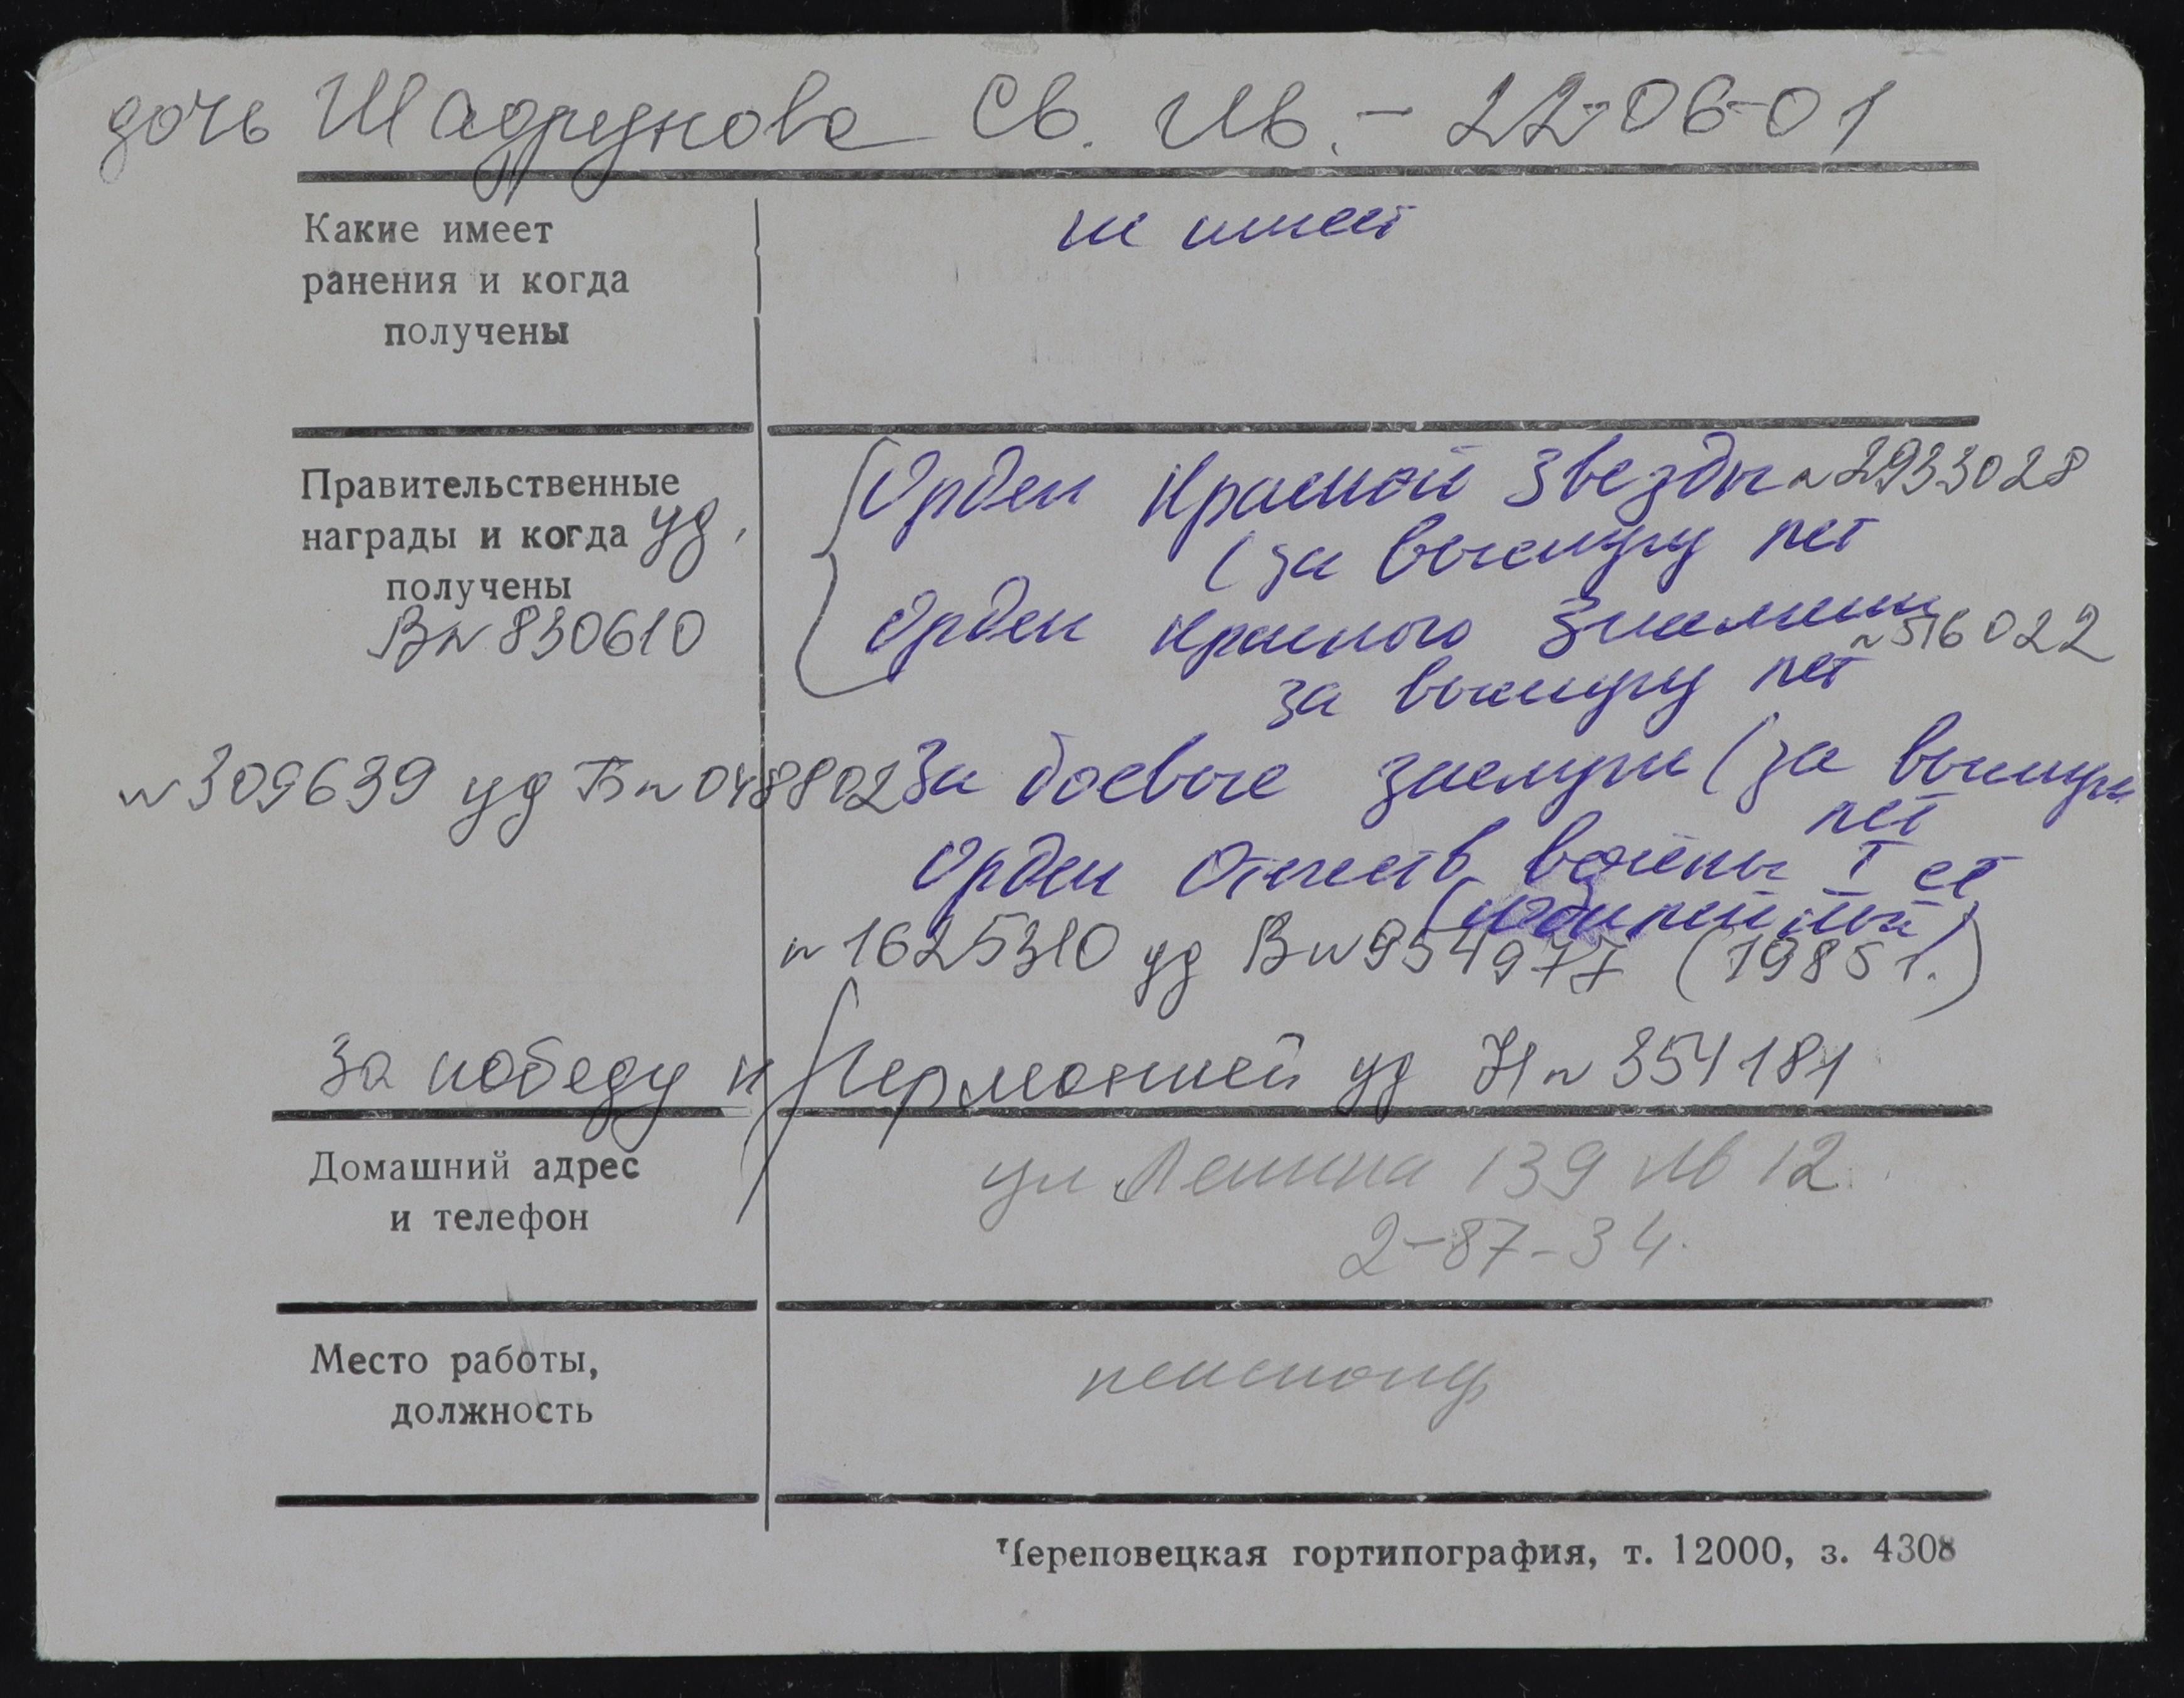 дочь Шадрунова Св. Ив. - 22-06-01
Какие имеет
ранения и когда
получены
не имеет
Правительственные
награды и когда
получены
уд.
В № 830610
Орден Красной Звезды № 2933028
(за выслугу лет
Орден Красного Знамени
№ 516022
за выслугу лет
№ 309639 уд Б № 048802 За боевые заслуги (за выслугу
лет
Орден Отечеств. войны I ст
(юбилейный)
№ 1625310 уд В № 954977 (1985 г.)
За победу н/Германией уд Н № 354181
Домашний адрес
и телефон
ул Ленина 139 кв 12
2-87-34.
Место работы,
должность
пенсионер
Череповецкая гортипография, т. 12000, з. 4308